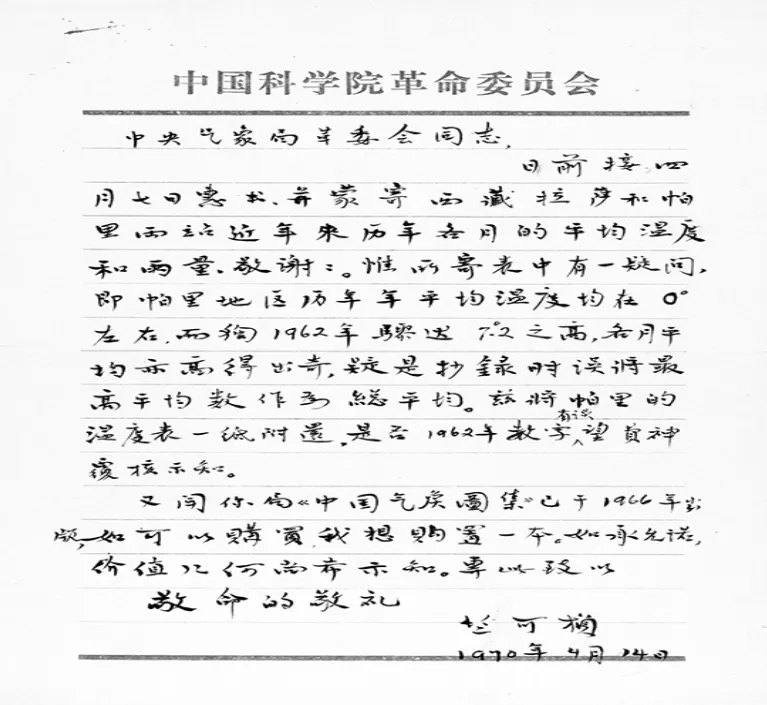 中国科学院革命委员会
中央气象局革委会同志,
日前接四
月七日惠书、并蒙寄西藏拉萨和帕
里两站近年来历年各月的平均温度
和雨量、敬谢〻。惟所寄表中有一疑问,
即帕里地区历年年平均温度均在0°
左右,而独1962年骤达7.°2之高,各月平
均亦高得出奇,疑是抄錄时误将最
高平均数作为総平均。兹将帕里的
温度表一纸附還,是否1962年数字有误,望費神
覆核示知。
又闻你局《中国气候圖集》已于1966年出
版,如可以購買,我想购置一本。如承允诺,
价值几何尚希示知。專此致以
敬命的敬礼
竺可桢
1970年4月14日